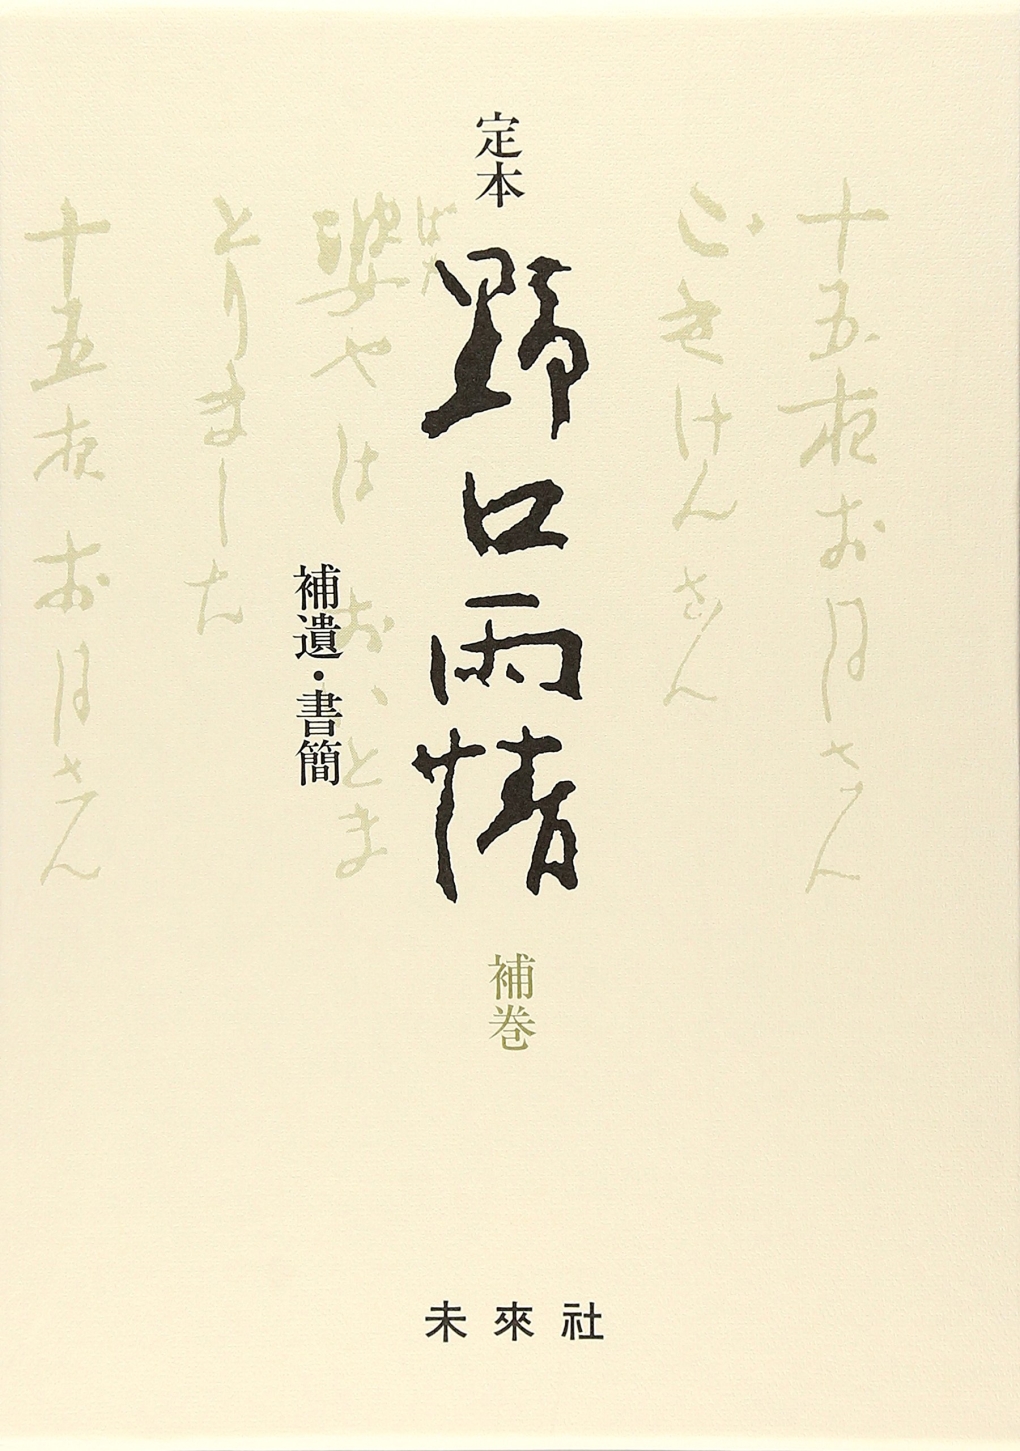 定本
野口雨情
補巻
補遺・書簡
十五夜お月さん
ごきげんさん
ばあ
婆やは おいとま
とりました
十五夜お月さん
未來社